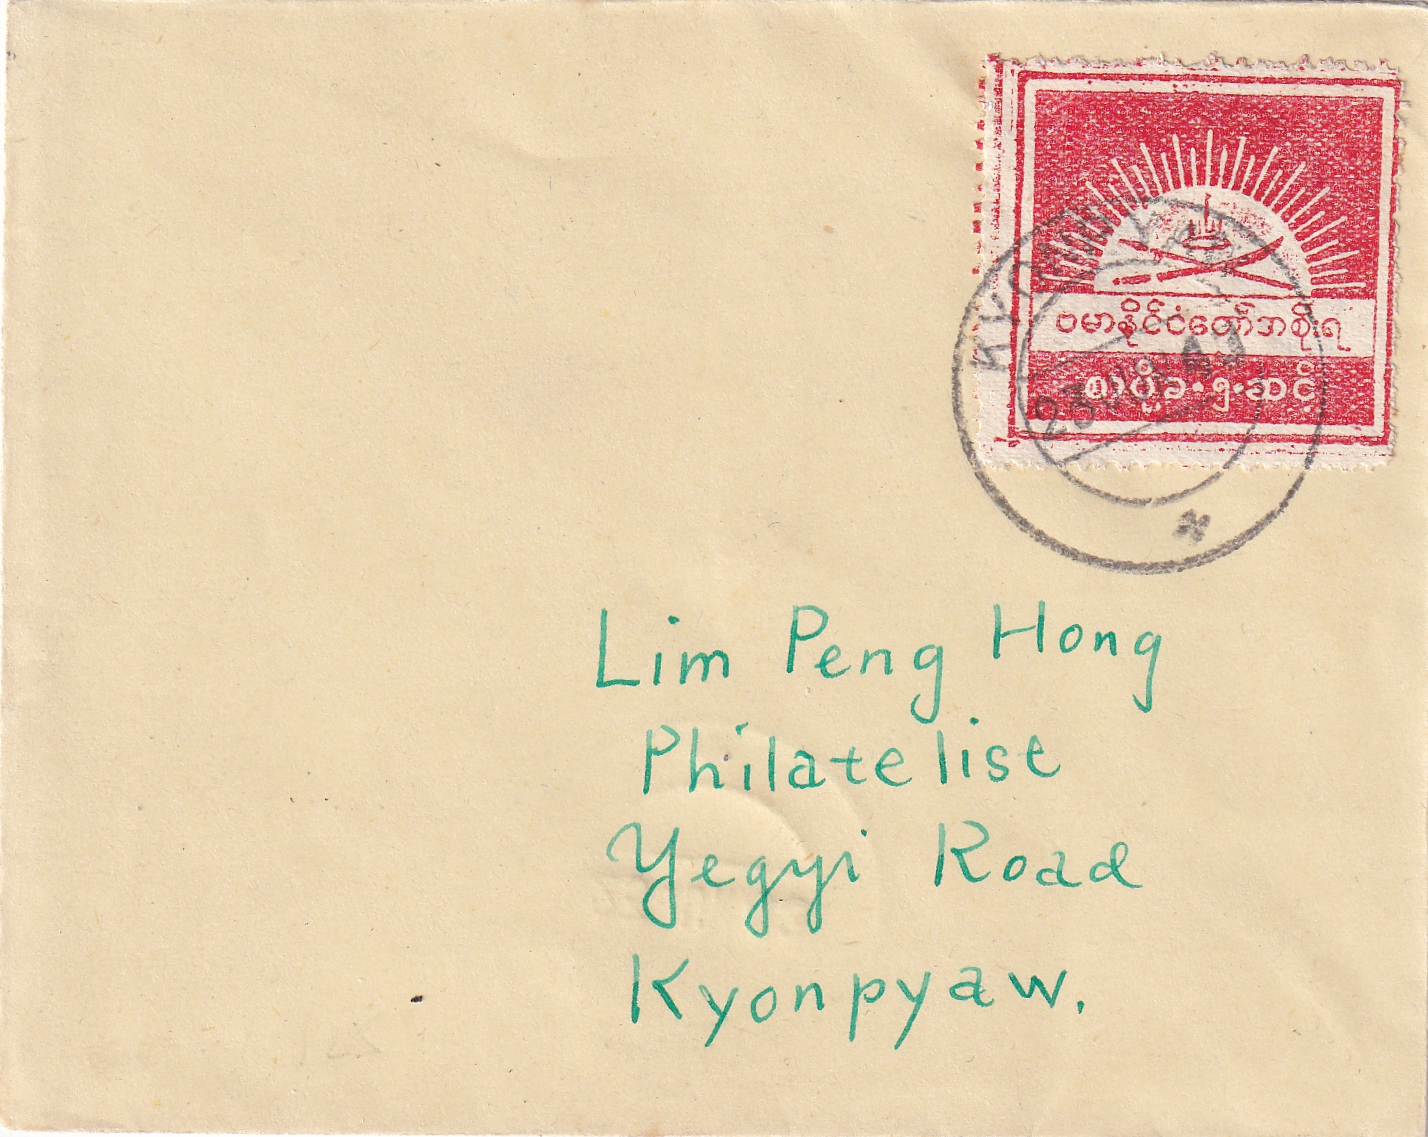 ဗမာနိုင်ငံတော်အစိုးရ
စာပို့ခ ၅ ဆင့်
23 JUN 43
Lim Peng Hong
Philatelist
Yegyi Road
Kyonpyaw.